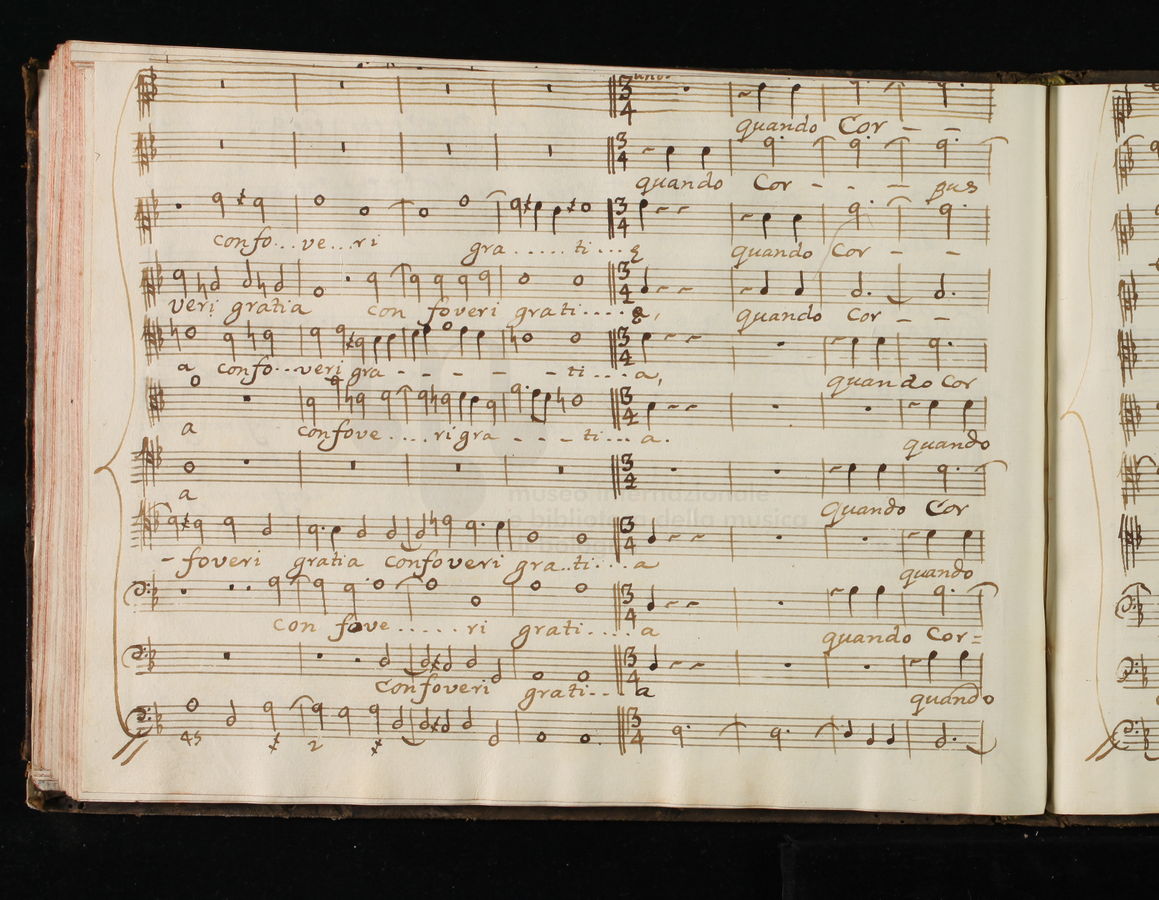 quando Cor - -
quando Cor - - - pus
confo...ve...ri gra.....ti...
quando Cor - -
veri gratia con foveri grati....a,
quando Cor - -
a confo...veri gra - - - - - ti...a,
quando Cor
a confove....ri gra - - - ti...a.
quando
a
quando Cor
museo internazionale
e biblioteca della musica
-foveri gratia Confoveri gra..ti...a
quando
con fove.....ri grati....a
quando Cor=
Confoveri grati.. a
quando
43 2